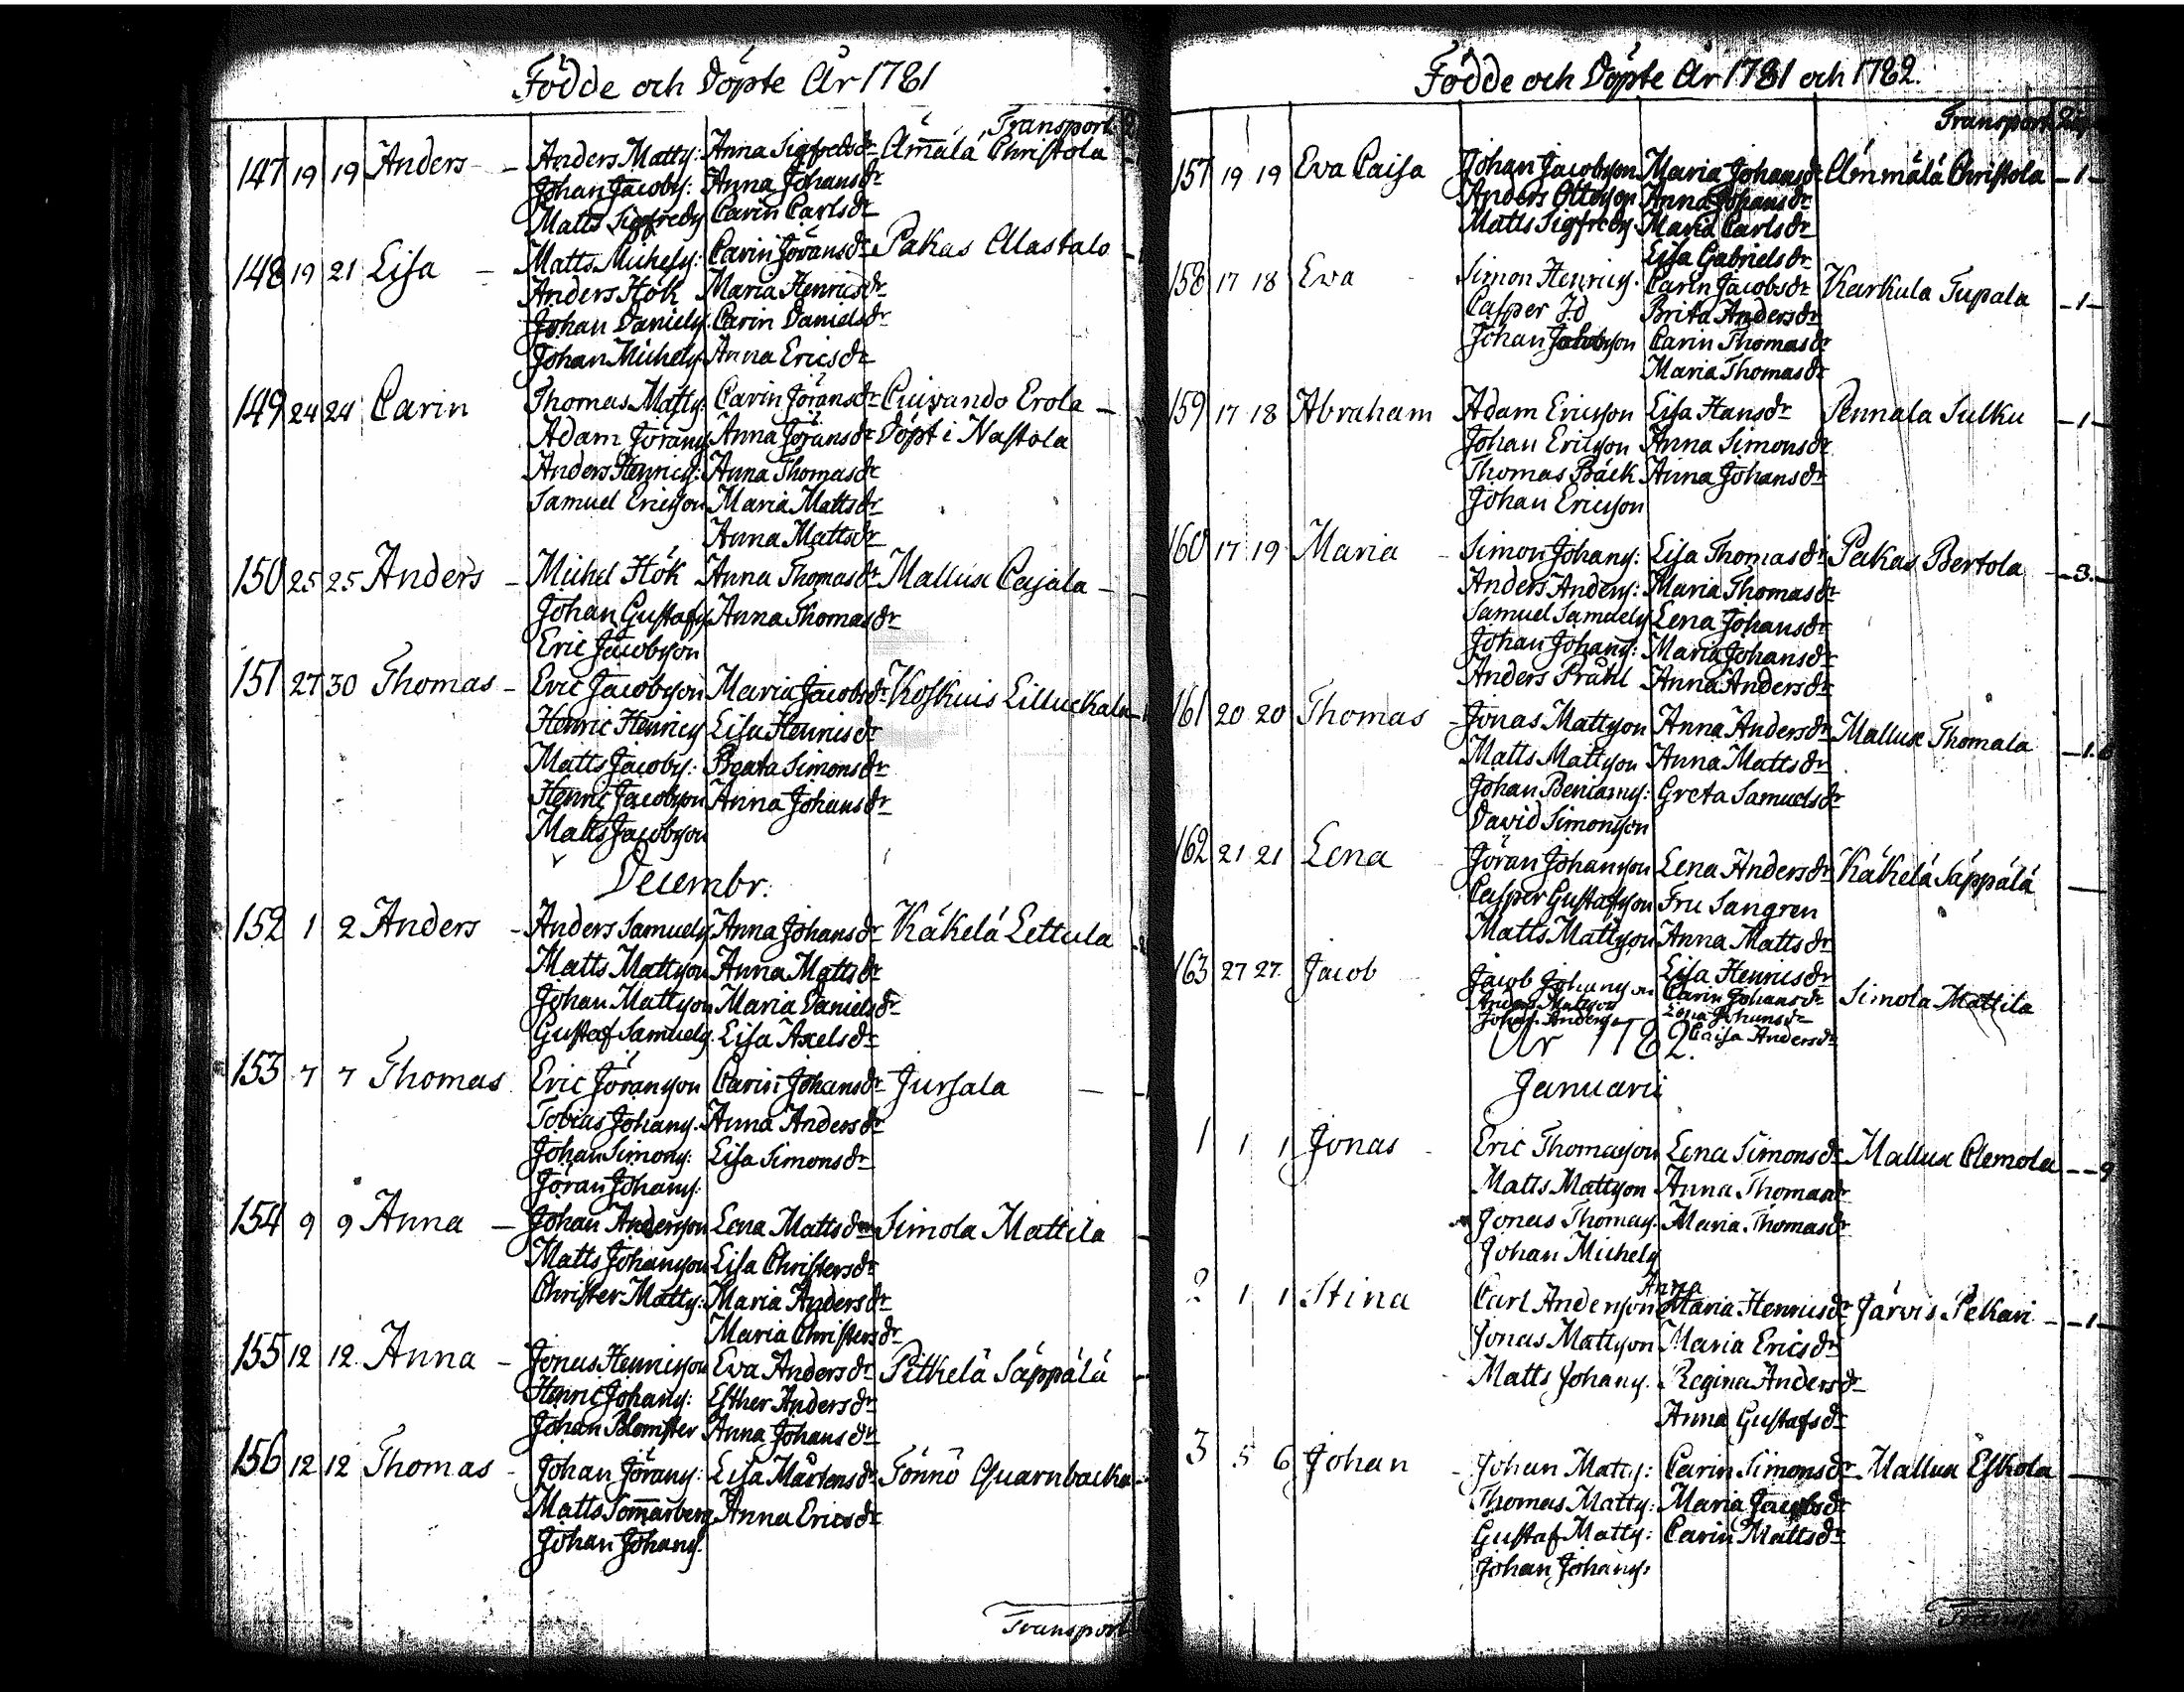 Födde och Döpte År 1781
Transport
147 19 19 Anders - Anders Matty: Anna Sigfredsdr Ämälä Christola
Johan Jacobs: Anna Johansdr
Matts Sigfreds Carin Carlsdr
148 19 21 Lisa - Matts Michels: Carin Jöransdr Pakas Allastalo
Anders Hök Maria Henricsdr
Johan Daniels Carin Danielsdr
Johan Michels Anna Ericsdr
149 24 24 Carin Thomas Matts: Carin Jöransdr Cuivando Erola -
Adam Jörans Anna Jöransdr Döpt i Nastola
Anders Henrics: Anna Thomasdr
Samuel Ericson Maria Mattsdr
Anna Mattsdr
150 25 25 Anders - Michel Hök Anna Thomasdr Mallusa Cajala -
Johan Gustafs Anna Thomasdr
Eric Jacobson
151 27 30 Thomas - Eric Jacobson Maria Jacobsdr Koskuis Lilluckala
Henric Henrics Lisa Henricsdr
Matts Jacobs: Beata Simonsdr
Henric Jacobson Anna Johansdr
Matts Jacobson
Decembr:
152 1 2 Anders - Anders Samuels Anna Johansdr Käkelä Lettula
Matts Mattson Anna Mattsdr
Johan Mattson Maria Danielsdr
Gustaf Samuels. Lisa Axelsdr
153 7 7 Thomas Eric Jöranson Carin Johansdr Jursala -
Tobias Johans. Anna Andersdr
Johan Simons: Lisa Simonsdr
Jöran Johans:
154 9 9 Anna - Johan Anderson Lena Mattsdr Simola Mattila
Matts Johanson Lisa Christersdr
Christer Matts: Maria Andersdr
Maria Christersdr
155 12 12 Anna - Jonas Henricson Eva Andersdr Pitkelä Säppälä
Henric Johans: Esther Andersdr
Johan Blomster Anna Johansdr
156 12 12 Thomas - Johan Jörans: Lisa Mårtensdr Tönnö Quarnbacka
Matts Som̅arberg Anna Ericsdr
Johan Johans.
Transport
Födde och Döpte År 1781 och 1782.
Transport
157 19 19 Eva Caisa Johan Jacobson Maria Johansdr Ämmälä Christola - 1 -
Anders Ottoson Anna Johansdr
Matts Sigfreds. Maria Carlsdr
Lisa Gabrielsdr
158 17 18 Eva Simon Henrics. Carin Jacobsdr Karkula Tupala - 1 -
Casper Id Brita Andersdr
Johan Jacobson Carin Thomasdr
Maria Thomasdr
159 17 18 Abraham Adam Ericsson Lisa Hansdr Pennala Sulku - 1 -
Johan Ericson Anna Simonsdr
Thomas Bäck Anna Johansdr
Johan Ericson
160 17 19 Maria - Simon Johans: Lisa Thomasdr Pakas Bertola - 3. -
Anders Anders: Maria Thomasdr
Samuel Samuels Lena Johansdr
Johan Johans: Maria Johansdr
Anders Pråhl Anna Andersdr
161 20 20 Thomas - Jonas Mattson Anna Andersdr Mallusa Thomala - 1.
Matts Mattson Anna Mattsdr
Johan Beniams: Greta Samuelsdr
David Simonson
162 21 21 Lena Jöran Johanson Lena Andersdr Käkelä Säppälä -
Casper Gustafson Fru Sangren
Matts Mattson Anna Mattsdr
Lisa Henricsdr
163 27 27 Jacob Jacob Johanson Carin Johansdr Simola Mattila
Anders Mattson Lena Johansdr
Johan Anders. Caisa Andersdr
År 1782.
Januarii
1 1 1 Jonas - Eric Thomason Lena Simonsdr Mallusa Clemola - - 9
Matts Mattson Anna Thomasdr
Jonas Thomas. Maria Thomasdr
Johan Michels
Anna
2 1 1 Stina Carl Anderson Maria Henricsdr Järvis Pekari - - 1 -
Jonas Mattson Maria Ericsdr
Matts Johans. Regina Andersdr
Anna Gustafsdr
3 5 6 Johan - Johan Matts: Carin Simonsdr Mallusa Eskola -
Thomas Matts: Maria Jacobsdr
Gustaf Matts: Carin Mattsdr
Johan Johans: